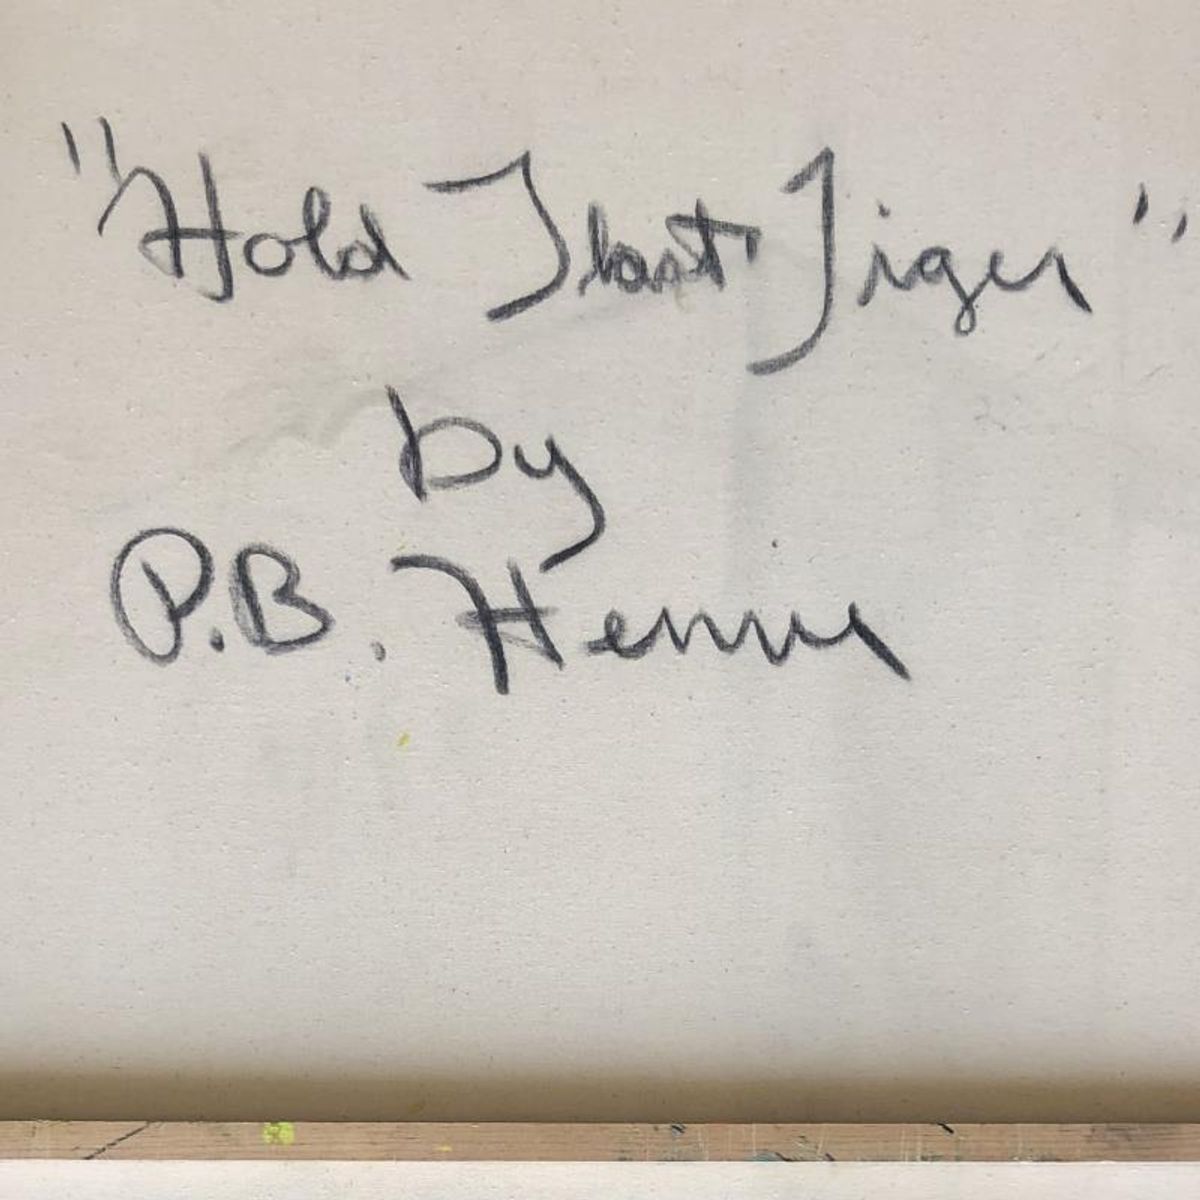 "Hold That Tiger"
by
P.B.